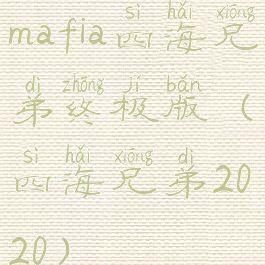 sì hǎi xiōng
mafia四海兄
dì zhōng jí bǎn
弟终极版（
sì hǎi xiōng dì
四海兄弟20
20）